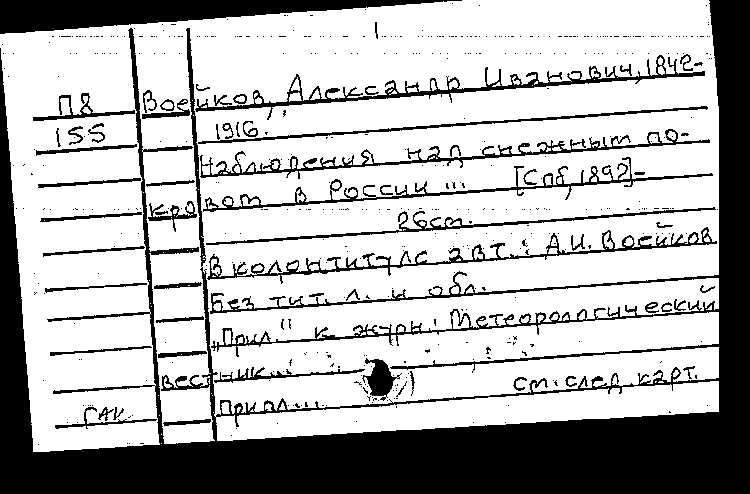 1
П8 Воейков, Александр Иванович, 1842-
155 1916.
Наблюдения над снежным по-
кровом в России ... [Спб, 1892]-
26 ст.
В колонтитуле авт.: А.И. Воейков
Без тит. л. и обл.
„Прил." к журн: Метеорологический
вестник...
ГАК Припл... см. след. карт.